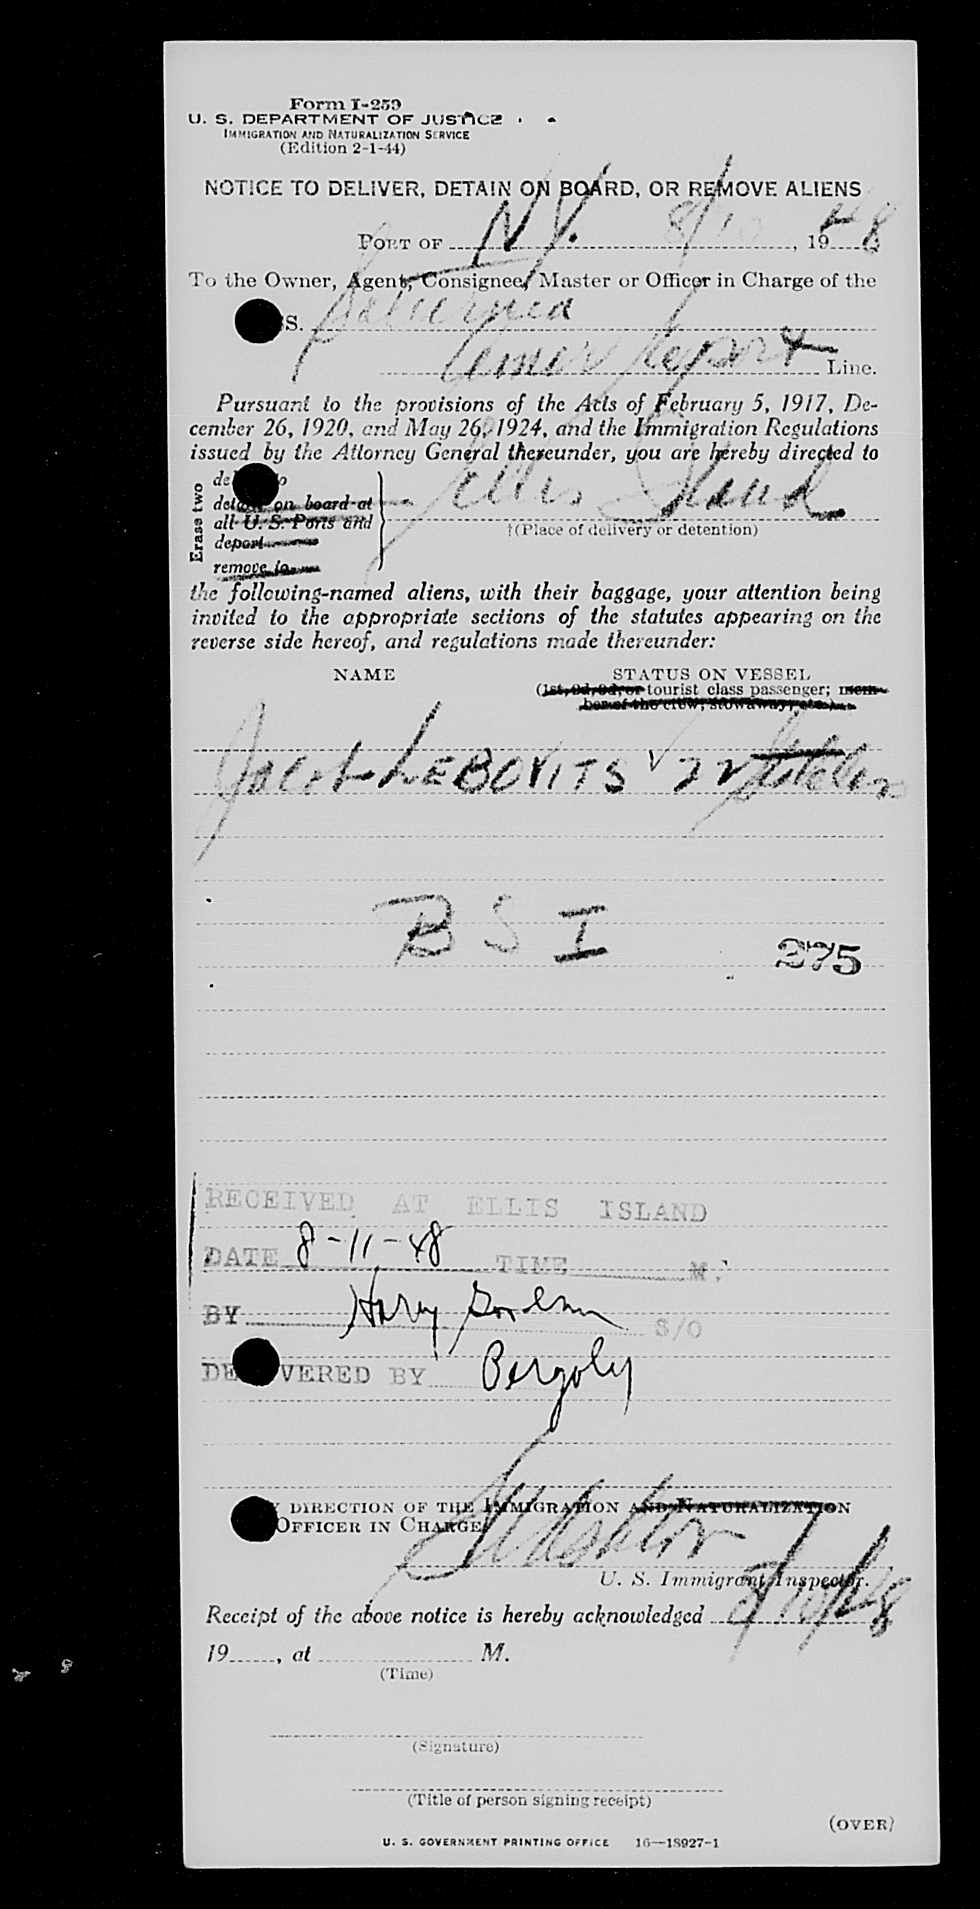 Form I-259
U. S. DEPARTMENT OF JUSTICE
IMMIGRATION AND NATURALIZATION SERVICE
(Edition 2-1-44)
NOTICE TO DELIVER, DETAIN ON BOARD, OR REMOVE ALIENS
PORT OF N.Y. 8/10, 1948
To the Owner, Agent, Consignee, Master or Officer in Charge of the
SS.
Amer Export Line.
Pursuant to the provisions of the Acts of February 5, 1917, De-
cember 26, 1920, and May 26, 1924, and the Immigration Regulations
issued by the Attorney General thereunder, you are hereby directed to
Erase two
detain on board at
all U. S. Ports and
deport
remove to
Ellis Island
†(Place of delivery or detention)
the following-named aliens, with their baggage, your attention being
invited to the appropriate sections of the statutes appearing on the
reverse side hereof, and regulations made thereunder:
NAME STATUS ON VESSEL
(1st, 2d, 3d, or tourist class passenger; mem-
ber of the crew; stowaway; etc.)
Jacob LEBOVITS ✓ 22
B S I
275
RECEIVED AT ELLIS ISLAND
DATE 8-11-48 TIME M.
BY Harry S/O
DELIVERED BY
BY DIRECTION OF THE IMMIGRATION AND NATURALIZATION
OFFICER IN CHARGE
U. S. Immigrant Inspector.
Receipt of the above notice is hereby acknowledged 8/10/48
19......, at M.
(Time)
(Signature)
(Title of person signing receipt)
(OVER)
U. S. GOVERNMENT PRINTING OFFICE 16—18927-1